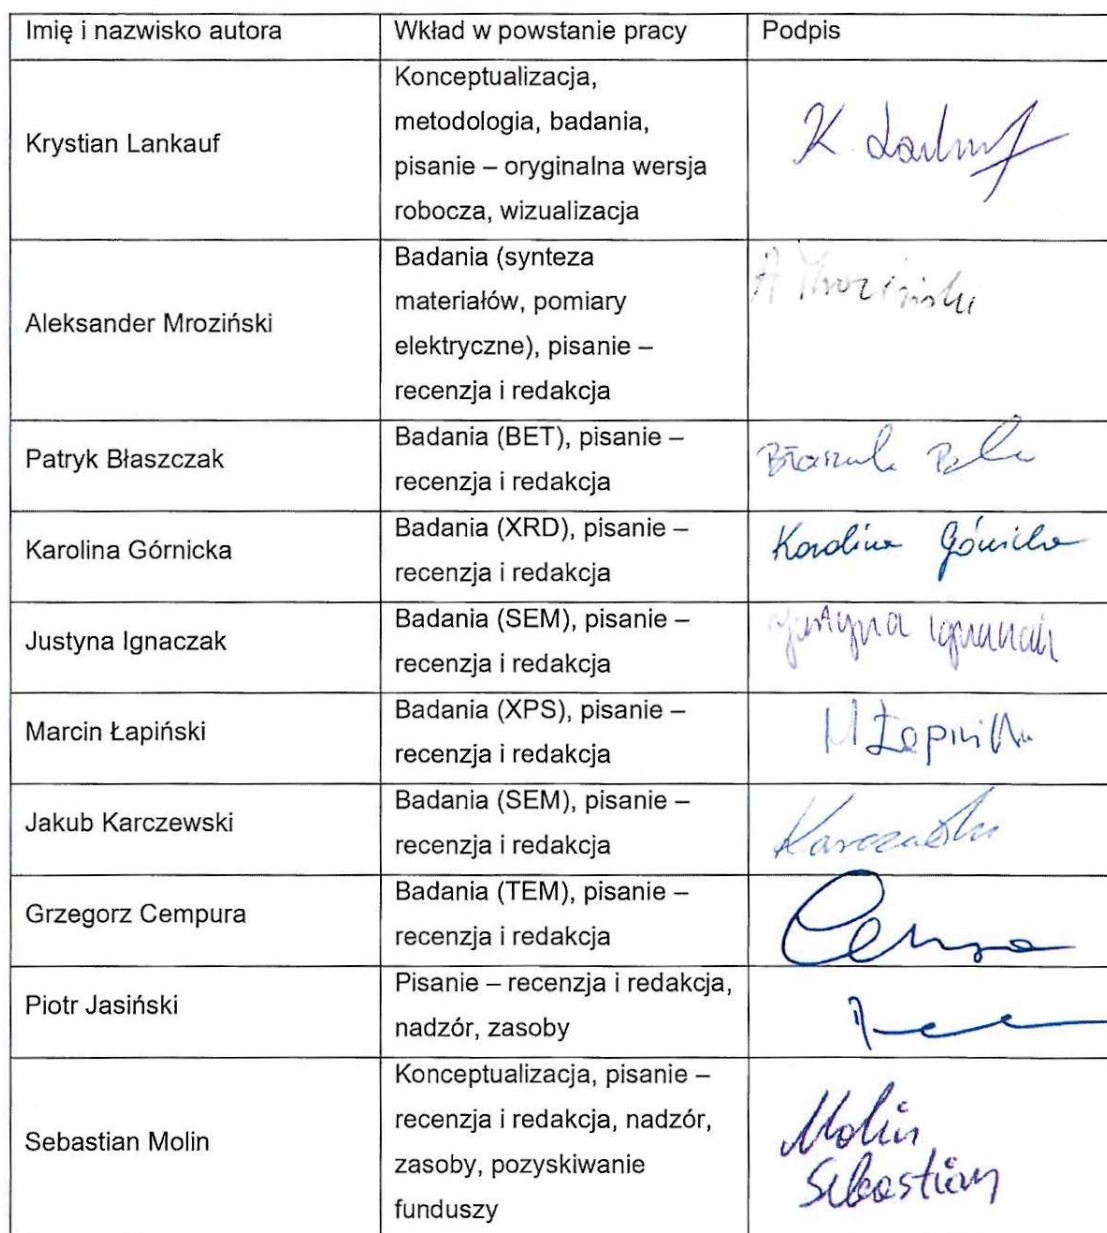 Imię i nazwisko autora
Wkład w powstanie pracy
Podpis
Krystian Lankauf
Konceptualizacja,
metodologia, badania,
pisanie – oryginalna wersja
robocza, wizualizacja
K. Lankauf
Aleksander Mroziński
Badania (synteza
materiałów, pomiary
elektryczne), pisanie –
recenzja i redakcja
A Mroziński
Patryk Błaszczak
Badania (BET), pisanie –
recenzja i redakcja
Karolina Górnicka
Badania (XRD), pisanie –
recenzja i redakcja
Karolina Górnicka
Justyna Ignaczak
Badania (SEM), pisanie –
recenzja i redakcja
Justyna Ignaczak
Marcin Łapiński
Badania (XPS), pisanie –
recenzja i redakcja
M Łapiński
Jakub Karczewski
Badania (SEM), pisanie –
recenzja i redakcja
Karczewski
Grzegorz Cempura
Badania (TEM), pisanie –
recenzja i redakcja
Piotr Jasiński
Pisanie – recenzja i redakcja,
nadzór, zasoby
Sebastian Molin
Konceptualizacja, pisanie –
recenzja i redakcja, nadzór,
zasoby, pozyskiwanie
funduszy
Molin
Sebastian